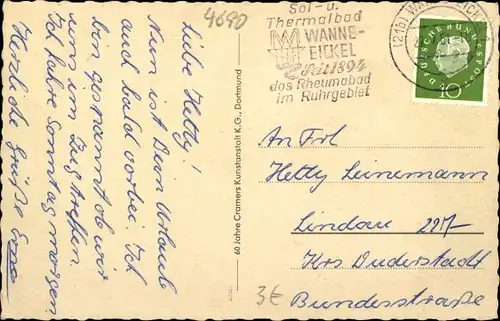 4690
Sol- u.
Thermalbad
WANNE-
EICKEL
Seit 1894
das Rheumabad
im Ruhrgebiet
(21b) WANNE-EICKEL
DEUTSCHE BUNDESPOST
10
Liebe Hetty!
Nun ist Dein Urlaub
auch bald vorbei. Ich
bin gespannt ob wir
uns im Zug treffen.
Ich fahre Sonntag morgen
Herzliche Grüße Erna
60 Jahre Cramers Kunstanstalt K.G., Dortmund
An Frl
Hetty Leinemann
Lindau
Krs Duderstadt
Bundesstraße
3€